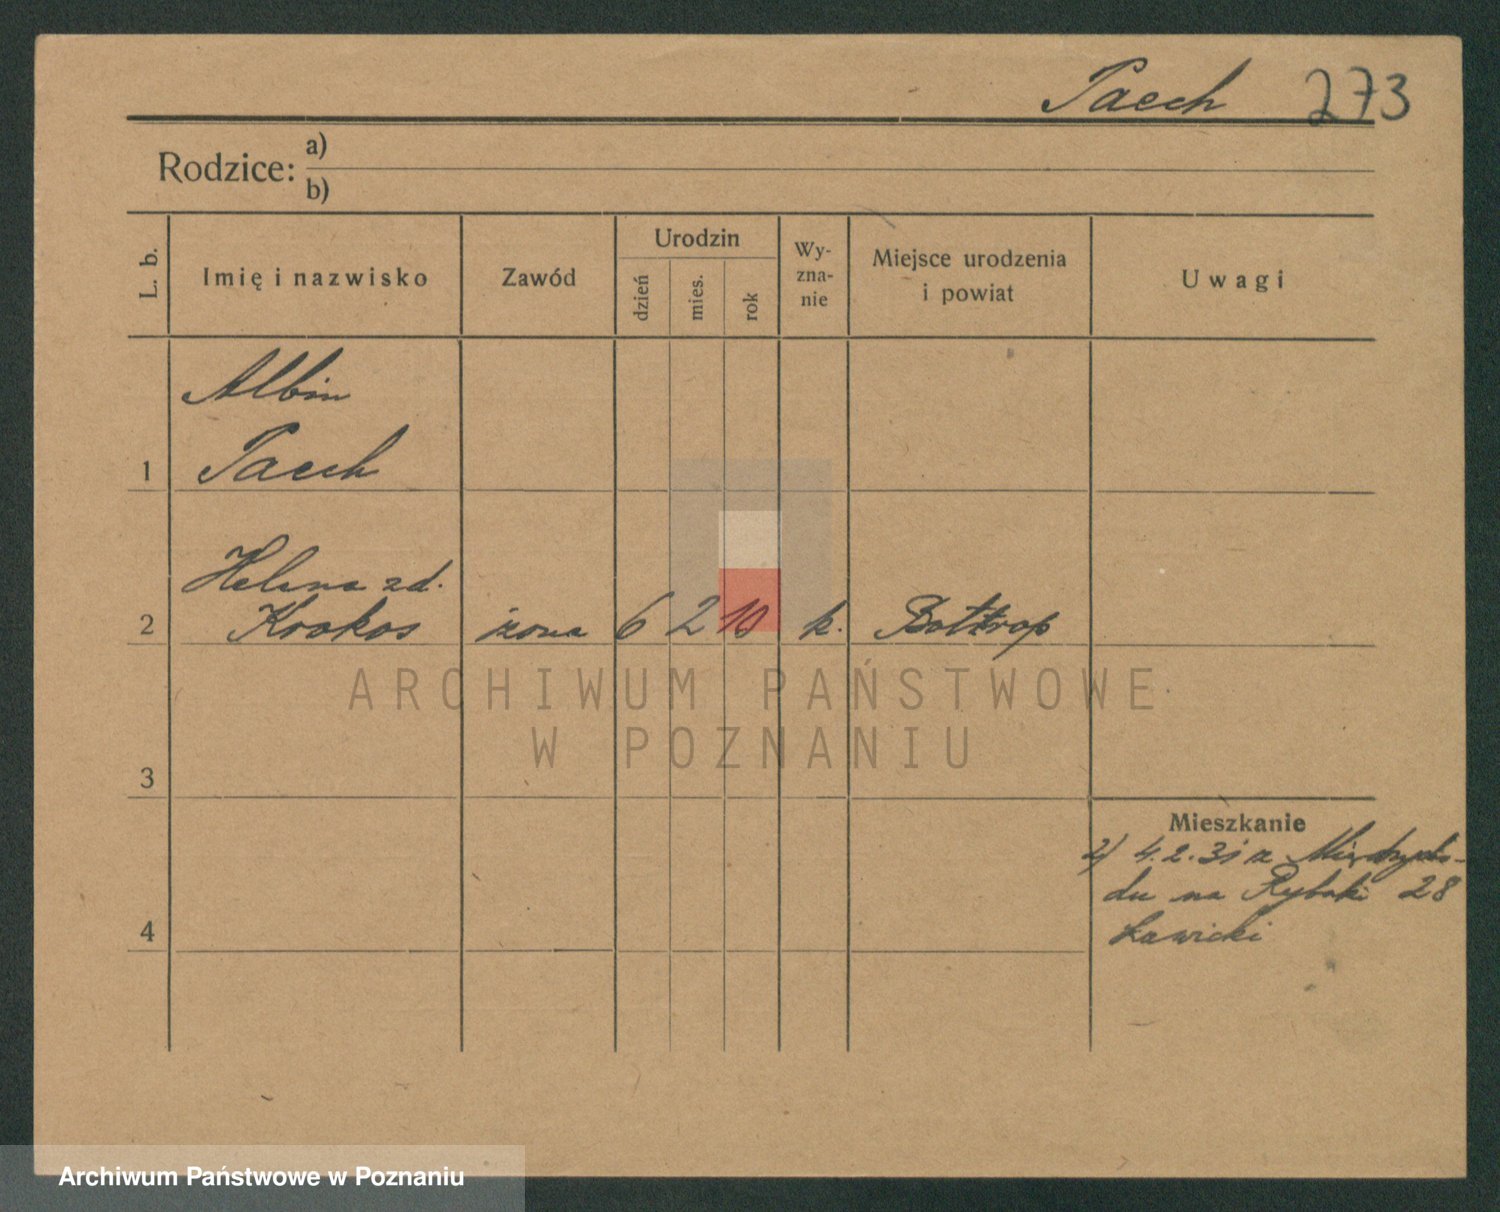 Paech 273
Rodzice: a)
b)
L. b.
Imię i nazwisko
Zawód
Urodzin
dzień
mies.
rok
Wy-
zna-
nie
Miejsce urodzenia
i powiat
Uwagi
Albin
1 Paech
Helena zd.
2 Krokos żona 6 2 10 k. Bottrop
ARCHIWUM PAŃSTWOWE
W POZNANIU
3
Mieszkanie
2) 4.2.31 z Międzycho-
du na Rybaki 28
Ławicki
4
Archiwum Państwowe w Poznaniu